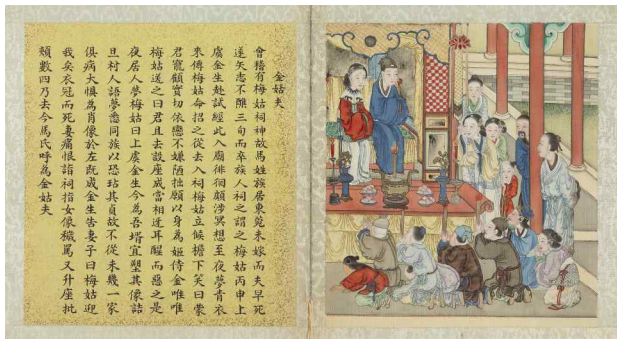 金姑夫
會稽有梅姑祠神故馬姓族居東莞未嫁而夫早死
遂矢志不醮三旬而卒族人祠之謂之梅姑丙申上
虞金生赴試經此入廟徘徊頗涉冥想至夜夢青衣
來傳梅姑命招之從去入祠梅姑立候檐下笑曰蒙
君寵顧實切依戀不嫌陋拙願以身為姬侍金唯唯
梅姑送之曰君且去設座成當相迓耳醒而惡之是
夜居人夢梅姑曰上虞金生今為吾壻宜塑其像詰
旦村人語夢悉同族以恐玷其貞故不從未幾一家
俱病大懼為肖像於左既成金生告妻子曰梅姑迎
我矣衣冠而死妻痛恨詣祠指女像穢罵又升座批
頰數四乃去今馬氏呼為金姑夫